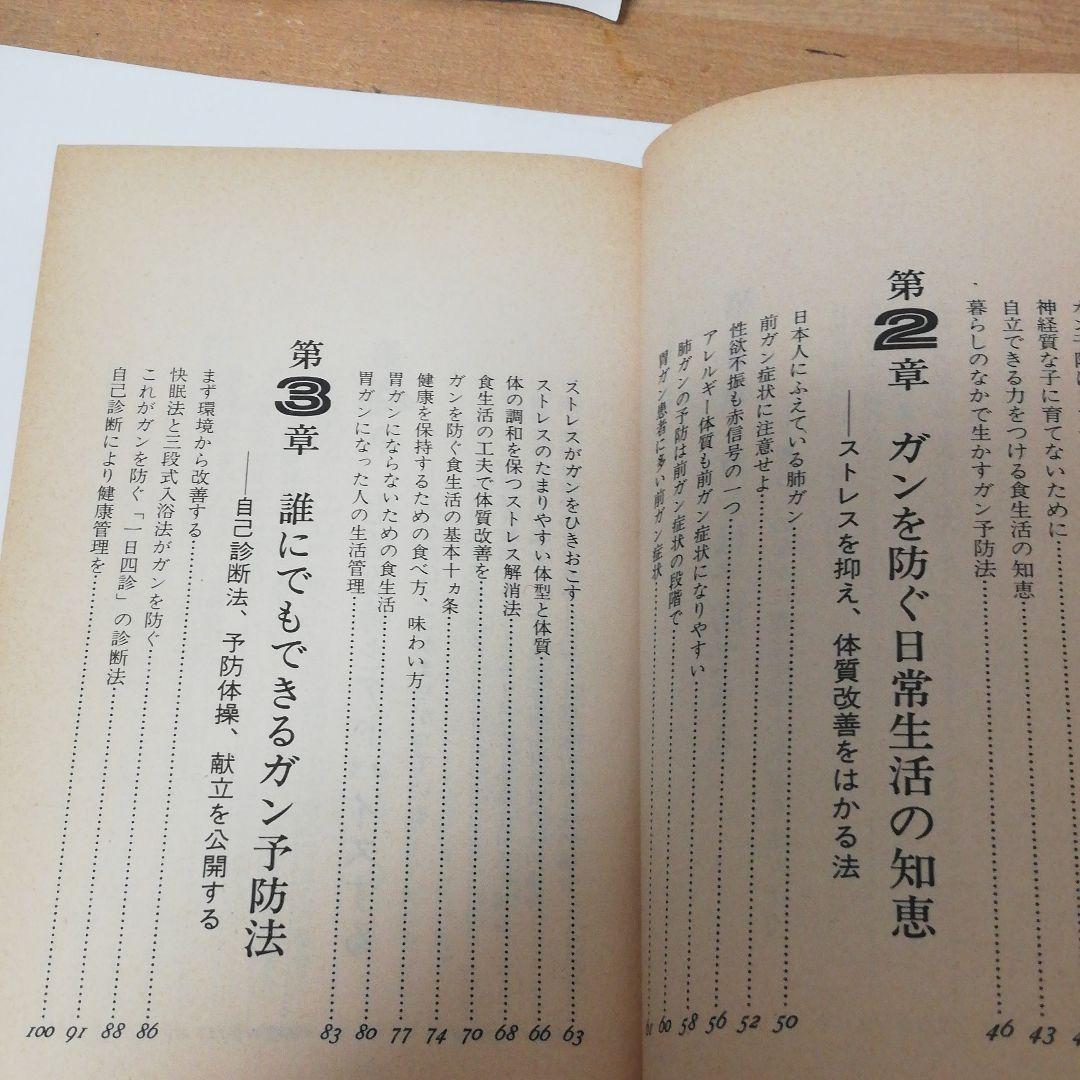 神経質な子に育てないために 43
自立できる力をつける食生活の知恵 46
暮らしのなかで生かすガン予防法
第2章 ガンを防ぐ日常生活の知恵
——ストレスを抑え、体質改善をはかる法
日本人にふえている肺ガン 50
前ガン症状に注意せよ 52
性欲不振も赤信号の一つ 56
アレルギー体質も前ガン症状になりやすい 58
肺ガンの予防は前ガン症状の段階で 60
胃ガン患者に多い前ガン症状 61
ストレスがガンをひきおこす 63
ストレスのたまりやすい体型と体質 66
体の調和を保つストレス解消法 68
食生活の工夫で体質改善を 70
ガンを防ぐ食生活の基本十ヵ条 74
健康を保持するための食べ方、味わい方 77
胃ガンにならないための食生活 80
胃ガンになった人の生活管理 83
第3章 誰にでもできるガン予防法
——自己診断法、予防体操、献立を公開する
まず環境から改善する 86
快眠法と三段式入浴法がガンを防ぐ 88
これがガンを防ぐ「一日四診」の診断法 91
自己診断により健康管理を 100